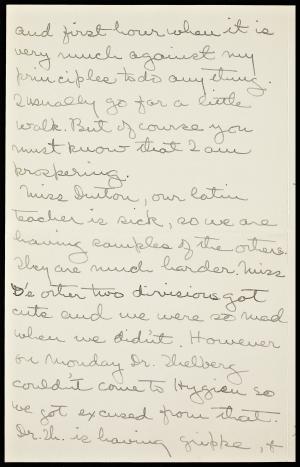 and first hour when it is
very much against my
principles to do any thing.
I usually go for a little
walk. But of course you
must know that I am
prospering.
Miss Durton, our latin
teacher is sick, so we are
having samples of the others.
They are much harder. Miss
D's other two divisions got
cuts and we were so mad
when we didn't. However
on Monday Dr. Thelberg
couldn't come to Hygien so
we got excused from that.
Dr. Th. is having grippe, &